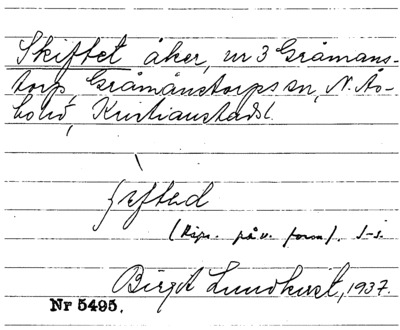 Skiftet åker, nr 3 Gråmans-
torp, Gråmanstorps sn, N. Ås-
bo hd, Kristianstads l.
(Rigs. påv. form). J-s.
Birgit Lundkvist, 1937.
Nr 5495.